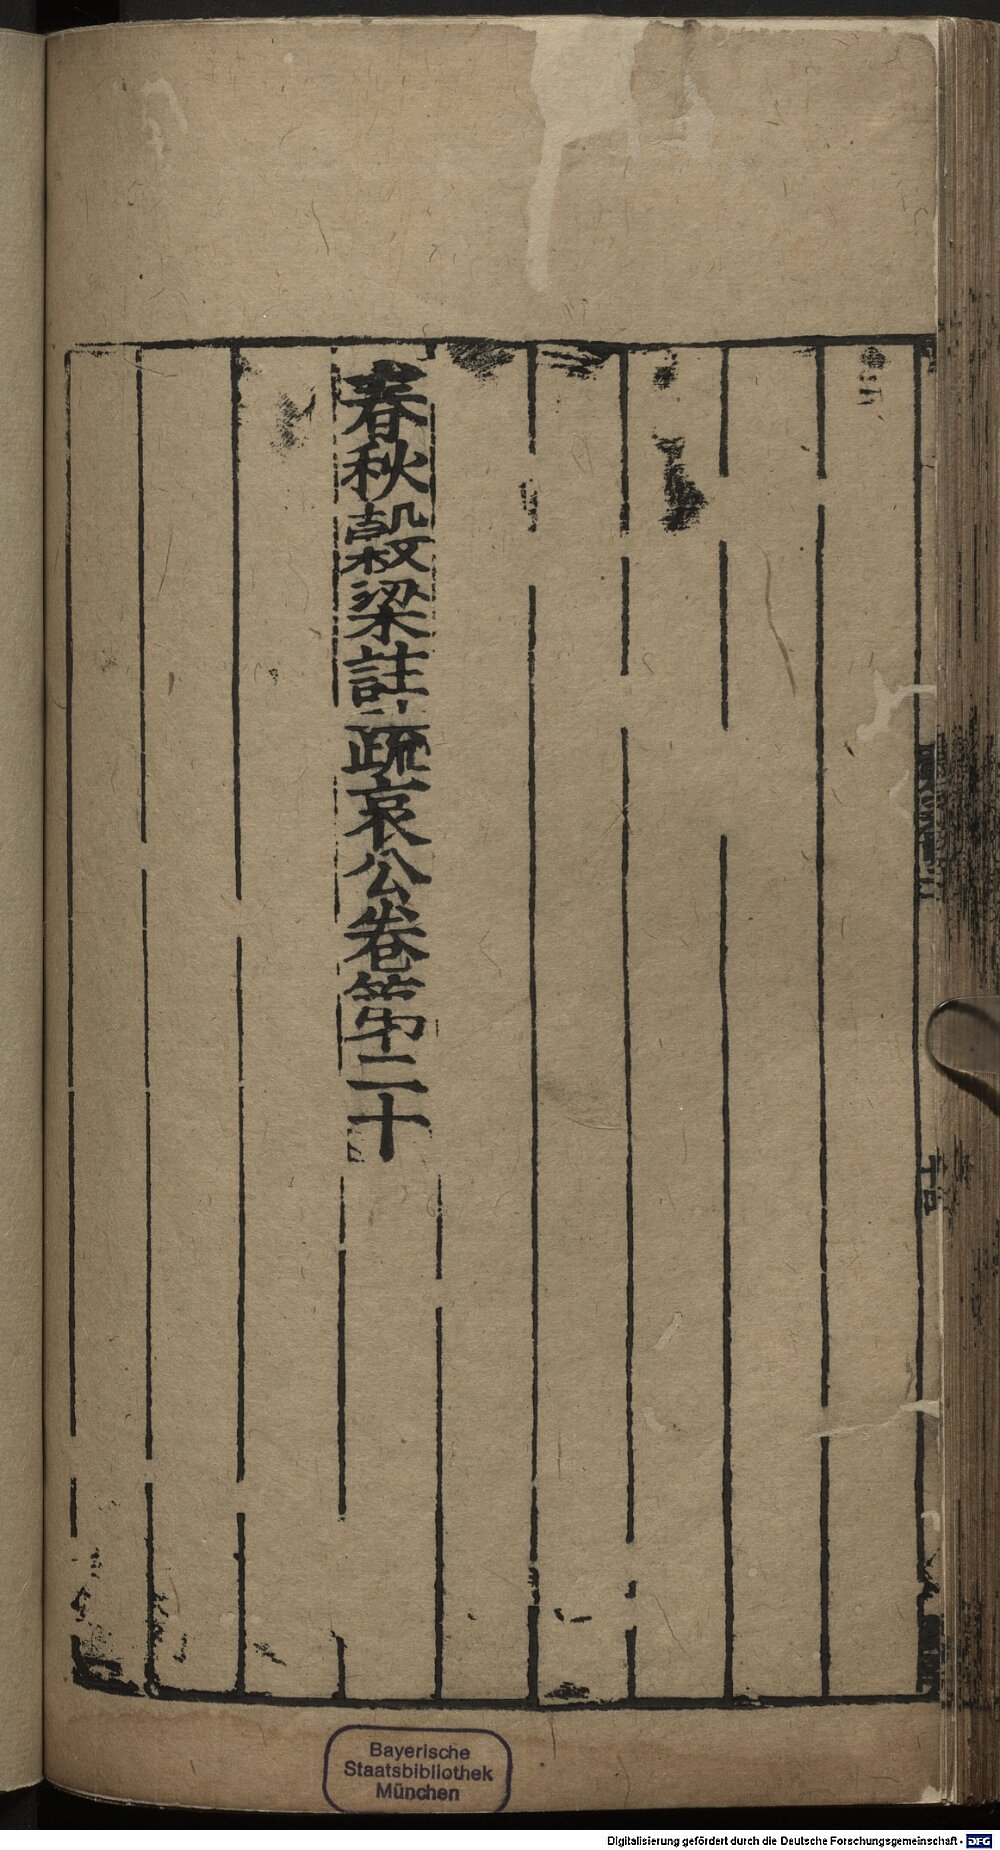 春秋穀梁註疏哀公卷第二十
十四
Bayerische
Staatsbibliothek
München
Digitalisierung gefördert durch die Deutsche Forschungsgemeinschaft - DFG